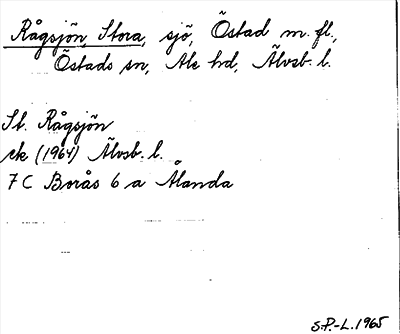 Rågsjön, Stora, sjö, Östad m. fl.,
Östads sn, Ale hd, Älvsb. l.
St. Rågsjön
ek (1964) Älvsb. l.
7 C Borås 6 a Ålanda
S.P.-L. 1965